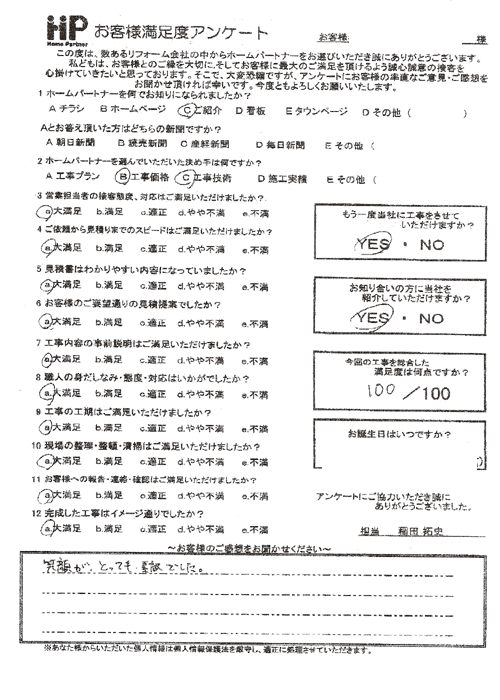 HP お客様満足度アンケート お客様: 様
Home Partner
この度は、数あるリフォーム会社の中からホームパートナーをお選びいただき誠にありがとうございます。
私どもは、お客様とのご縁を大切に、そしてお客様に最大のご満足を頂けるよう誠心誠意の接客を
心掛けていきたいと思っております。そこで、大変恐縮ですが、アンケートにお客様の率直なご意見・ご感想を
お聞かせ頂ければ幸いです。今度ともよろしくお願いいたします。
1 ホームパートナーを何でお知りになられましたか?
A チラシ B ホームページ C ご紹介 D 看板 E タウンページ D その他 ( )
Aとお答え頂いた方はどちらの新聞ですか?
A 朝日新聞 B 読売新聞 C 産経新聞 D 毎日新聞 E その他 (
2 ホームパートナーを選んでいただいた決め手は何ですか?
A 工事プラン B 工事価格 C 工事技術 D 施工実績 E その他 (
3 営業担当者の接客態度、対応はご満足いただけましたか?
a.大満足 b.満足 c.適正 d.やや不満 e.不満
4 ご依頼から見積りまでのスピードはご満足いただけましたか?
a.大満足 b.満足 c.適正 d.やや不満 e.不満
5 見積書はわかりやすい内容になっていましたか?
a.大満足 b.満足 c.適正 d.やや不満 e.不満
6 お客様のご要望通りの見積提案でしたか?
a.大満足 b.満足 c.適正 d.やや不満 e.不満
7 工事内容の事前説明はご満足いただけましたか?
a.大満足 b.満足 c.適正 d.やや不満 e.不満
8 職人の身だしなみ・態度・対応はいかがでしたか?
a.大満足 b.満足 c.適正 d.やや不満 e.不満
9 工事の工期はご満足いただけましたか?
a.大満足 b.満足 c.適正 d.やや不満 e.不満
10 現場の整理・整頓・清掃はご満足いただけましたか?
a.大満足 b.満足 c.適正 d.やや不満 e.不満
11 お客様への報告・連絡・確認はご満足いただけましたか?
a.大満足 b.満足 c.適正 d.やや不満 e.不満
12 完成した工事はイメージ通りでしたか?
a.大満足 b.満足 c.適正 d.やや不満 e.不満
もう一度当社に工事をさせて
いただけますか?
YES ・ NO
お知り合いの方に当社を
紹介していただけますか?
YES ・ NO
今回の工事を総合した
満足度は何点ですか?
100 /100
お誕生日はいつですか?
アンケートにご協力いただき誠に
ありがとうございました。
担当 稲田 拓史
~お客様のご感想をお聞かせください~
笑顔が、とっても素敵でした。
※あなた様からいただいた個人情報は個人情報保護法を厳守し、適正に処理させていただきます。